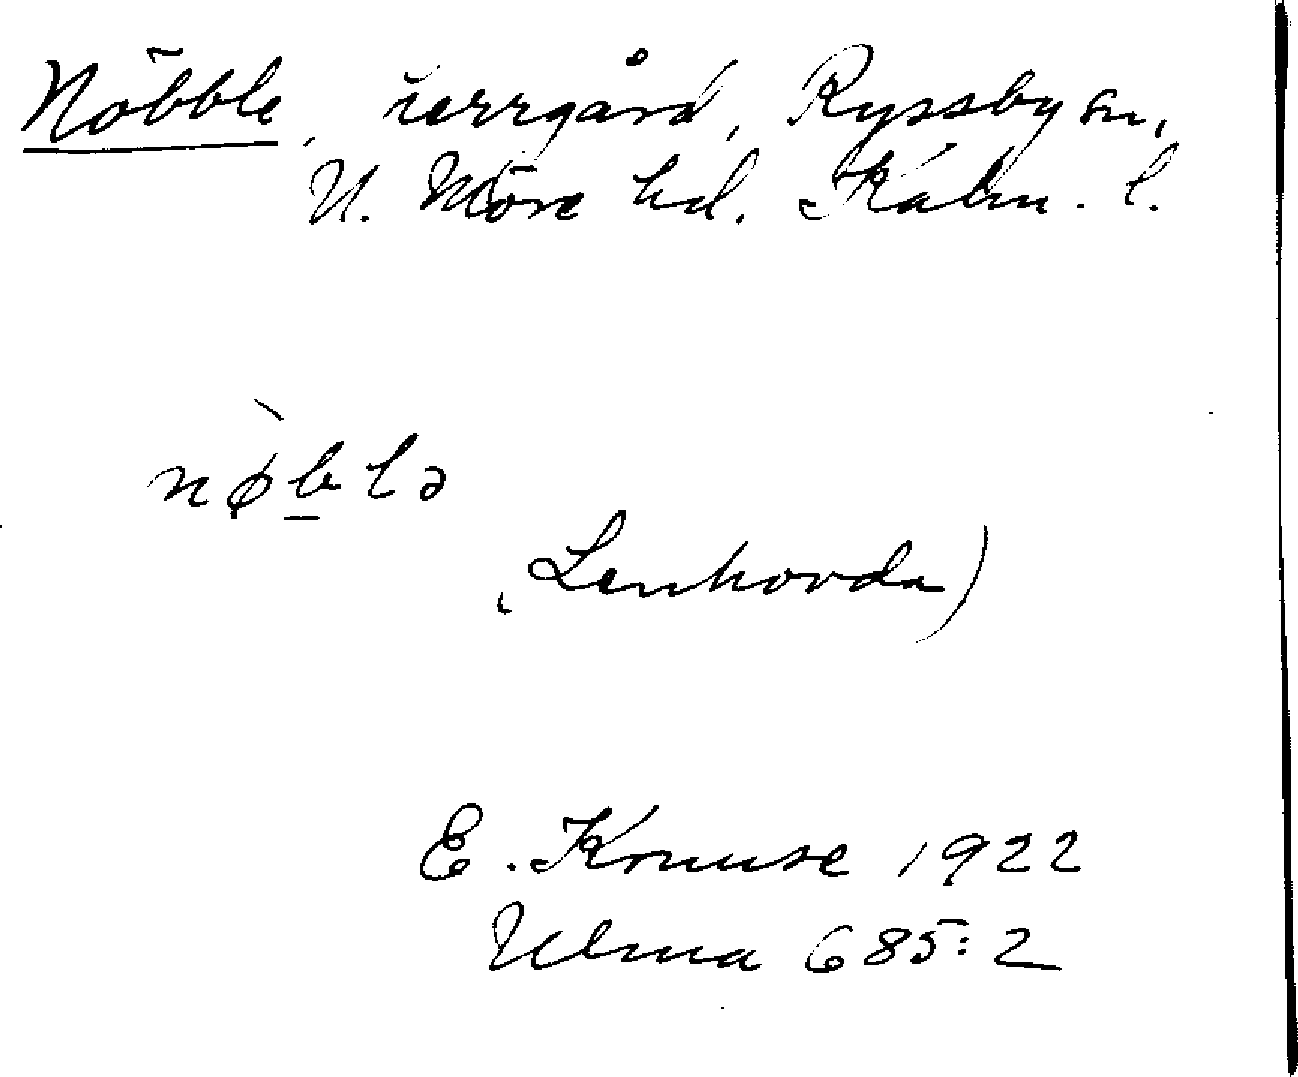 Nöbble, herrgård, Ryssby sn,
N. Möre hd. Kalm. l.
nø̀b̲lə
(Lenhovda)
E. Kruuse 1922
Ulma 685:2